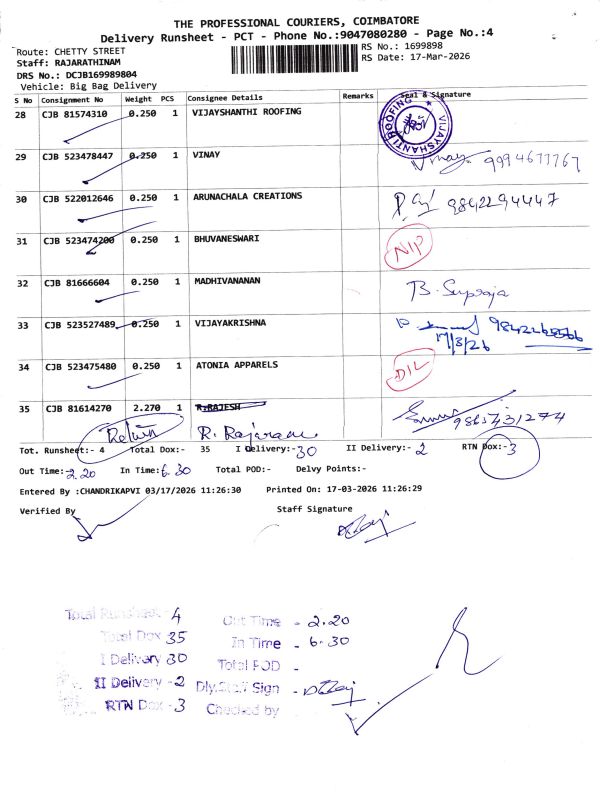 THE PROFESSIONAL COURIERS, COIMBATORE
Delivery Runsheet - PCT - Phone No.:9047080280 - Page No.:4
Route: CHETTY STREET
RS No.: 1699898
Staff: RAJARATHINAM
RS Date: 17-Mar-2026
DRS No.: DCJB169989804
Vehicle: Big Bag Delivery
S No Consignment No Weight PCS Consignee Details Remarks Seal & Signature
28 CJB 81574310 0.250 1 VIJAYSHANTHI ROOFING
VIJAYSHANTI ROOFING
29 CJB 523478447 0.250 1 VINAY Vinay 9994677767
30 CJB 522012646 0.250 1 ARUNACHALA CREATIONS 9842294447
31 CJB 523474200 0.250 1 BHUVANESWARI NIP
32 CJB 81666604 0.250 1 MADHIVANANAN B. Supraja
33 CJB 523527489 0.250 1 VIJAYAKRISHNA
17/3/26
34 CJB 523475480 0.250 1 ATONIA APPARELS DIL
35 CJB 81614270 2.270 1 R.RAJESH
Return
Tot. Runsheet:- 4 Total Dox:- 35 I Delivery:- 30 II Delivery:- 2 RTN Dox:- 3
Out Time:- 2.20 In Time:- 6.30 Total POD:- Delvy Points:-
Entered By :CHANDRIKAPVI 03/17/2026 11:26:30 Printed On: 17-03-2026 11:26:29
Verified By Staff Signature
Total Runsheet - 4 Out Time - 2.20
Total Dox 35 In Time - 6.30
I Delivery 30 Total POD -
II Delivery - 2 Dly.Staff Sign -
RTN Dox - 3 Checked by